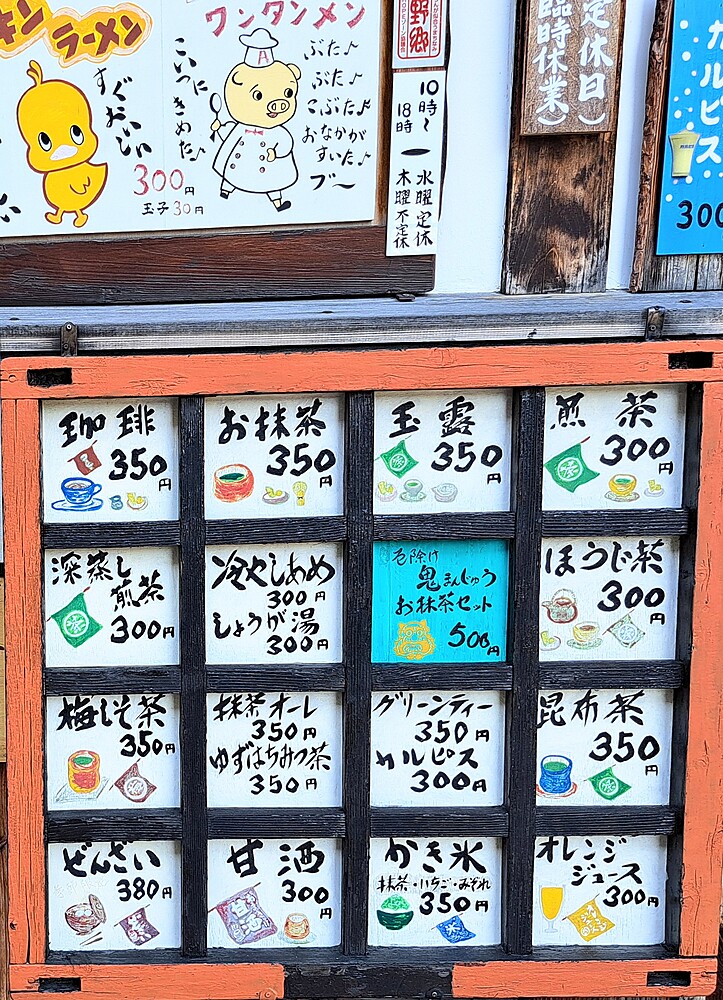 キン
ラーメン
すぐおいしい
300円
玉子30円
ワンタンメン
こいつにきめた♪
ぶた♪
ぶた♪
こぶた♪
おなかが
すいた♪
ブー
野郷
10時〜
18時
水曜定休
木曜不定休
定休日)
臨時休業)
カルピス
300
珈琲
350円
お抹茶
350円
玉露
350円
煎茶
300円
深蒸し
煎茶
300円
冷やしあめ
300円
しょうが湯
300円
厄除け
鬼まんじゅう
お抹茶セット
500円
ほうじ茶
300円
梅しそ茶
350円
抹茶オーレ
350円
ゆずはちみつ茶
350円
グリーンティー
350円
カルピス
300円
昆布茶
350円
ぜんざい
380円
甘酒
300円
かき氷
抹茶・いちご・みぞれ
350円
氷
オレンジ
ジュース
300円